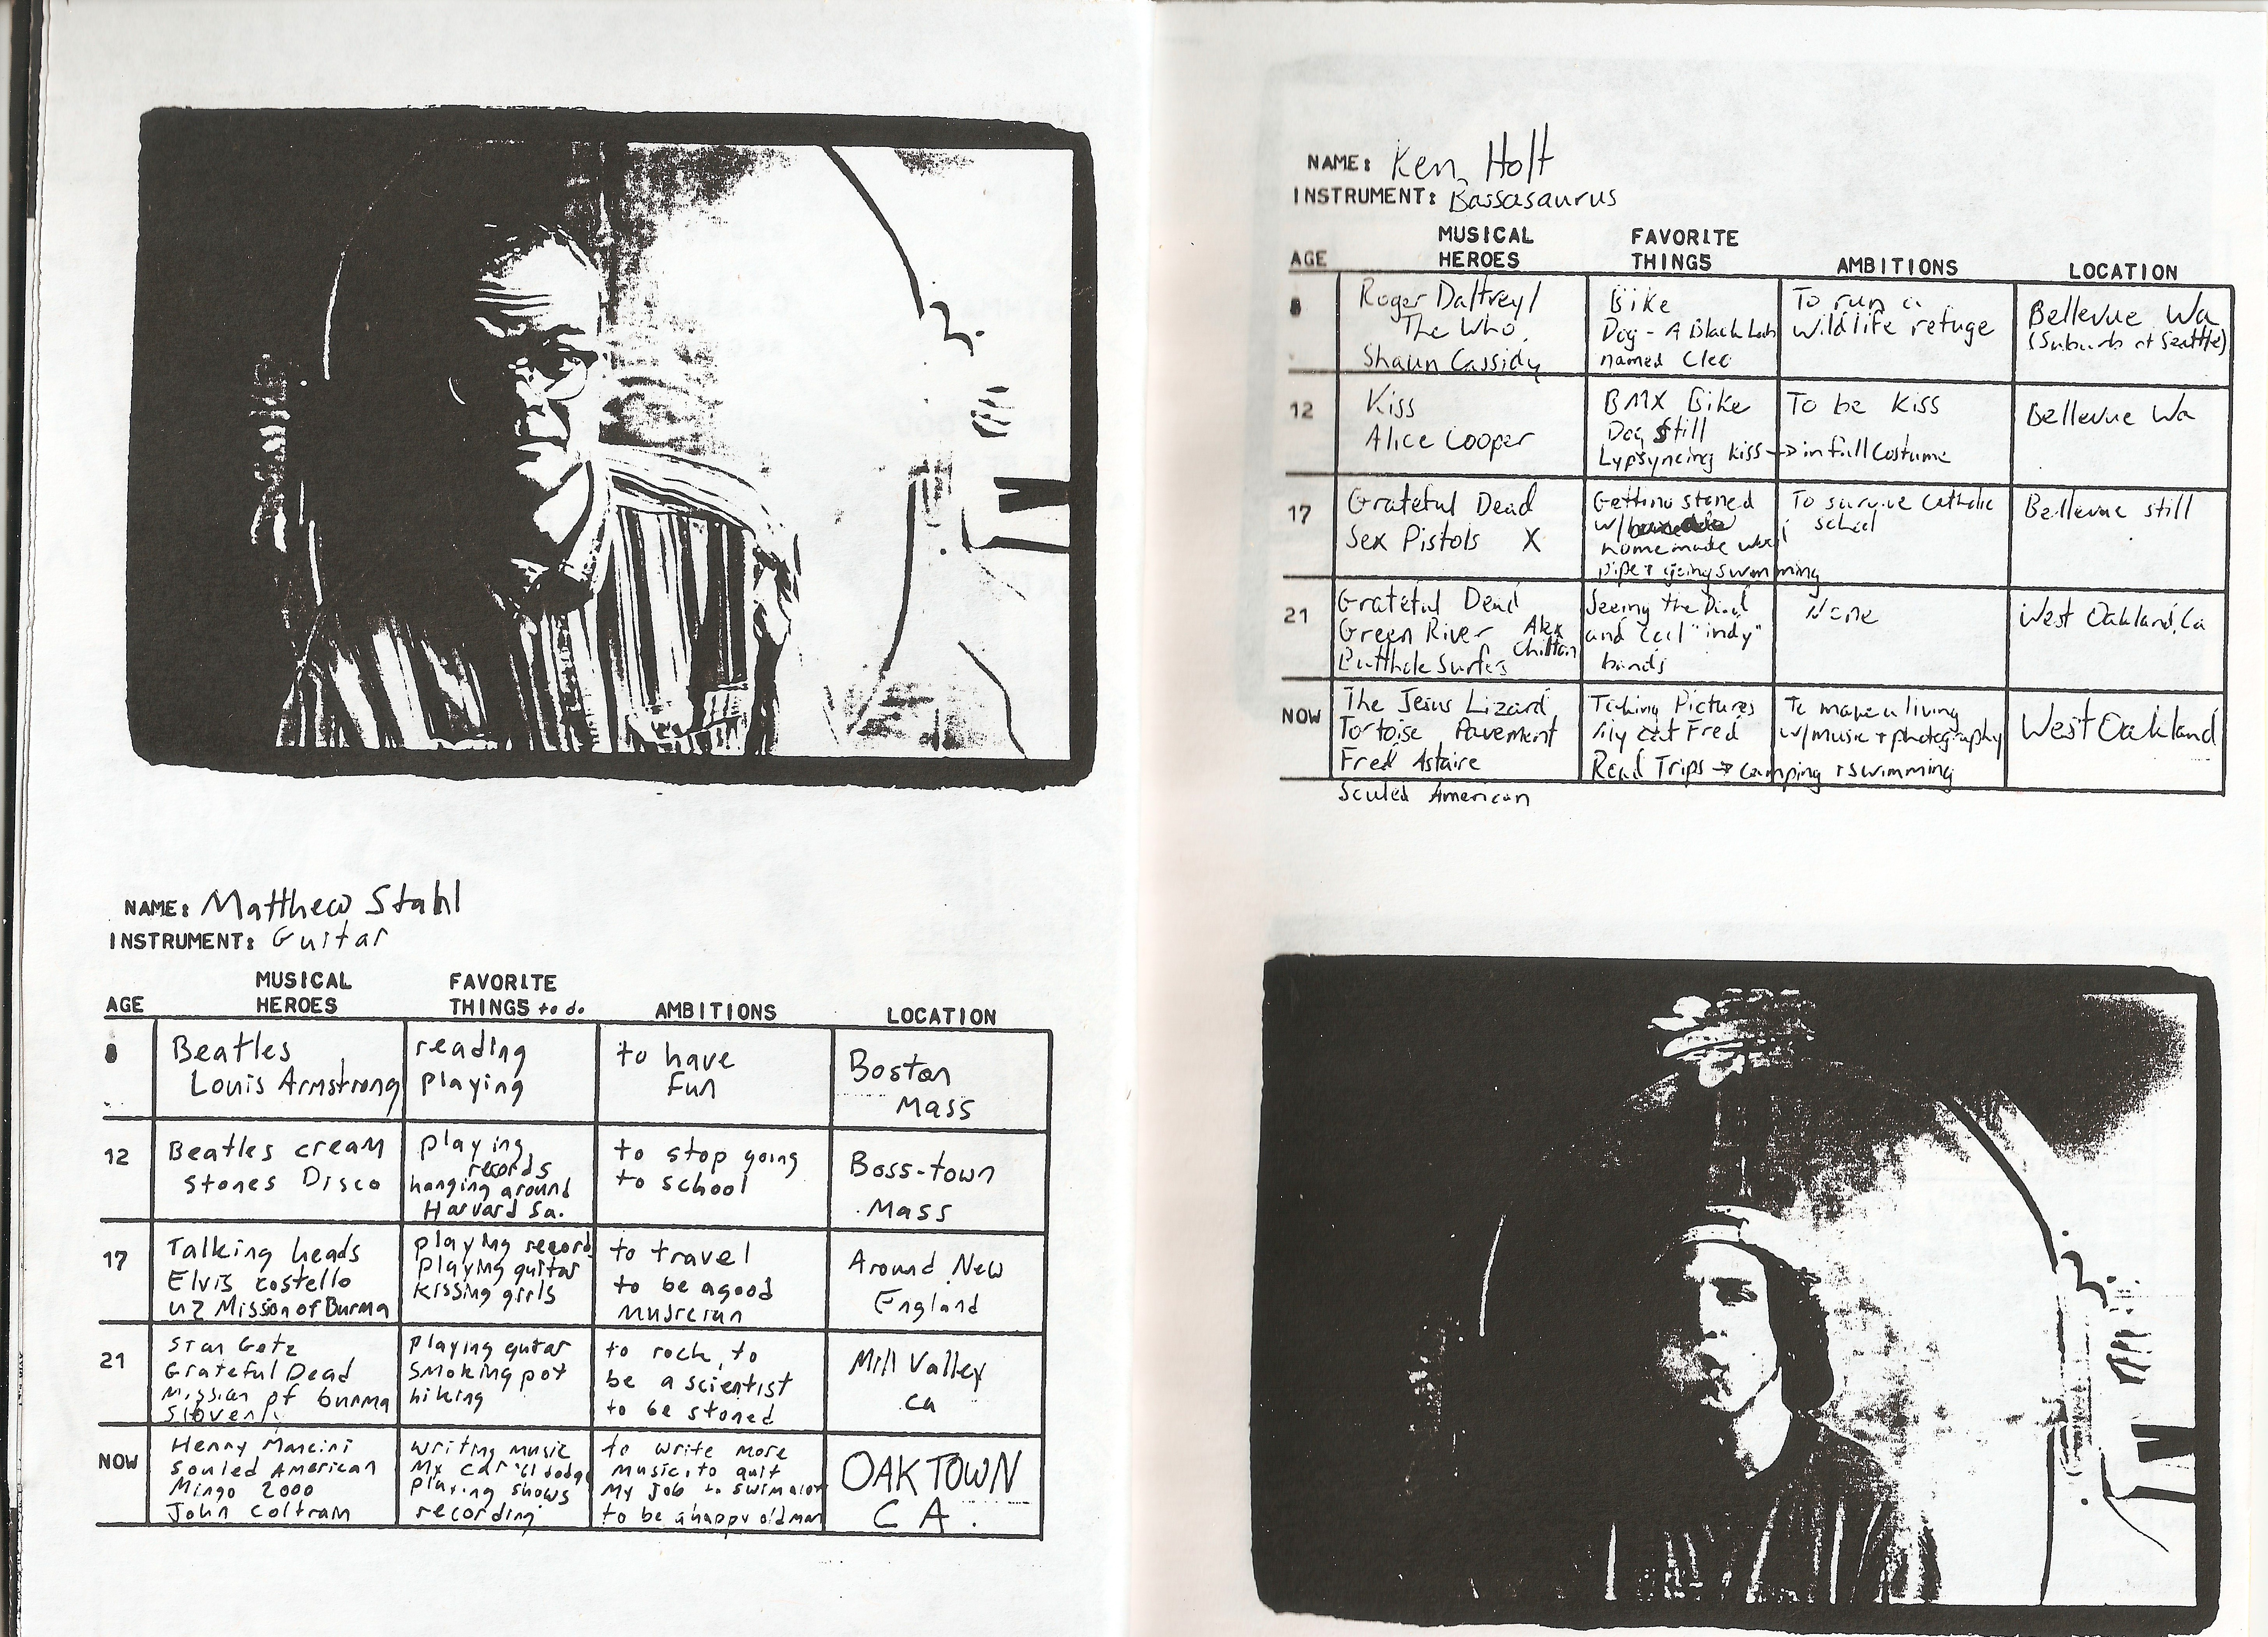 NAME: Matthew Stahl
INSTRUMENT: Guitar
AGE
MUSICAL HEROES
FAVORITE THINGS to do
AMBITIONS
LOCATION
8
Beatles
Louis Armstrong
reading
playing
to have
fun
Boston
Mass
12
Beatles cream
Stones Disco
playing
records
hanging around
Harvard Sq.
to stop going
to school
Boss-town
Mass
17
Talking heads
Elvis costello
U2 Mission of Burma
playing records
playing guitar
kissing girls
to travel
to be a good
musician
Around New
England
21
Stan Getz
Grateful Dead
Mission of burma
playing guitar
smoking pot
hiking
to rock, to
be a scientist
to be stoned
Mill Valley
Ca
NOW
Henry Mancini
Souled American
Mingo 2000
John Coltram
writing music
My car '61 dodge
playing shows
recording
to write more
music, to quit
my job to swim a lot
to be a happy old man
OAKTOWN
CA.
NAME: Ken Holt
INSTRUMENT: Bassasaurus
AGE
MUSICAL HEROES
FAVORITE THINGS
AMBITIONS
LOCATION
8
Roger Daltrey/
The Who
Shaun Cassidy
Bike
Dog - A Black Lab
named Cleo
To run a
wildlife refuge
Bellevue Wa
(Suburb of Seattle)
12
Kiss
Alice Cooper
BMX Bike
Dog Still
Lypsyncing Kiss -> in full costume
To be Kiss
Bellevue Wa
17
Grateful Dead
Sex Pistols X
Getting stoned
w/
homemade
pipe + going swimming
To survive Catholic
school
Bellevue still
21
Grateful Dead
Green River Alex Chilton
Butthole Surfers
Seeing the Dead
and cool "indy"
bands
None
West Oakland, Ca
NOW
The Jesus Lizard
Tortoise Pavement
Fred Astaire
Souled American
Taking Pictures
My cat Fred
Road Trips -> camping + swimming
To make a living
w/music + photography
West Oakland